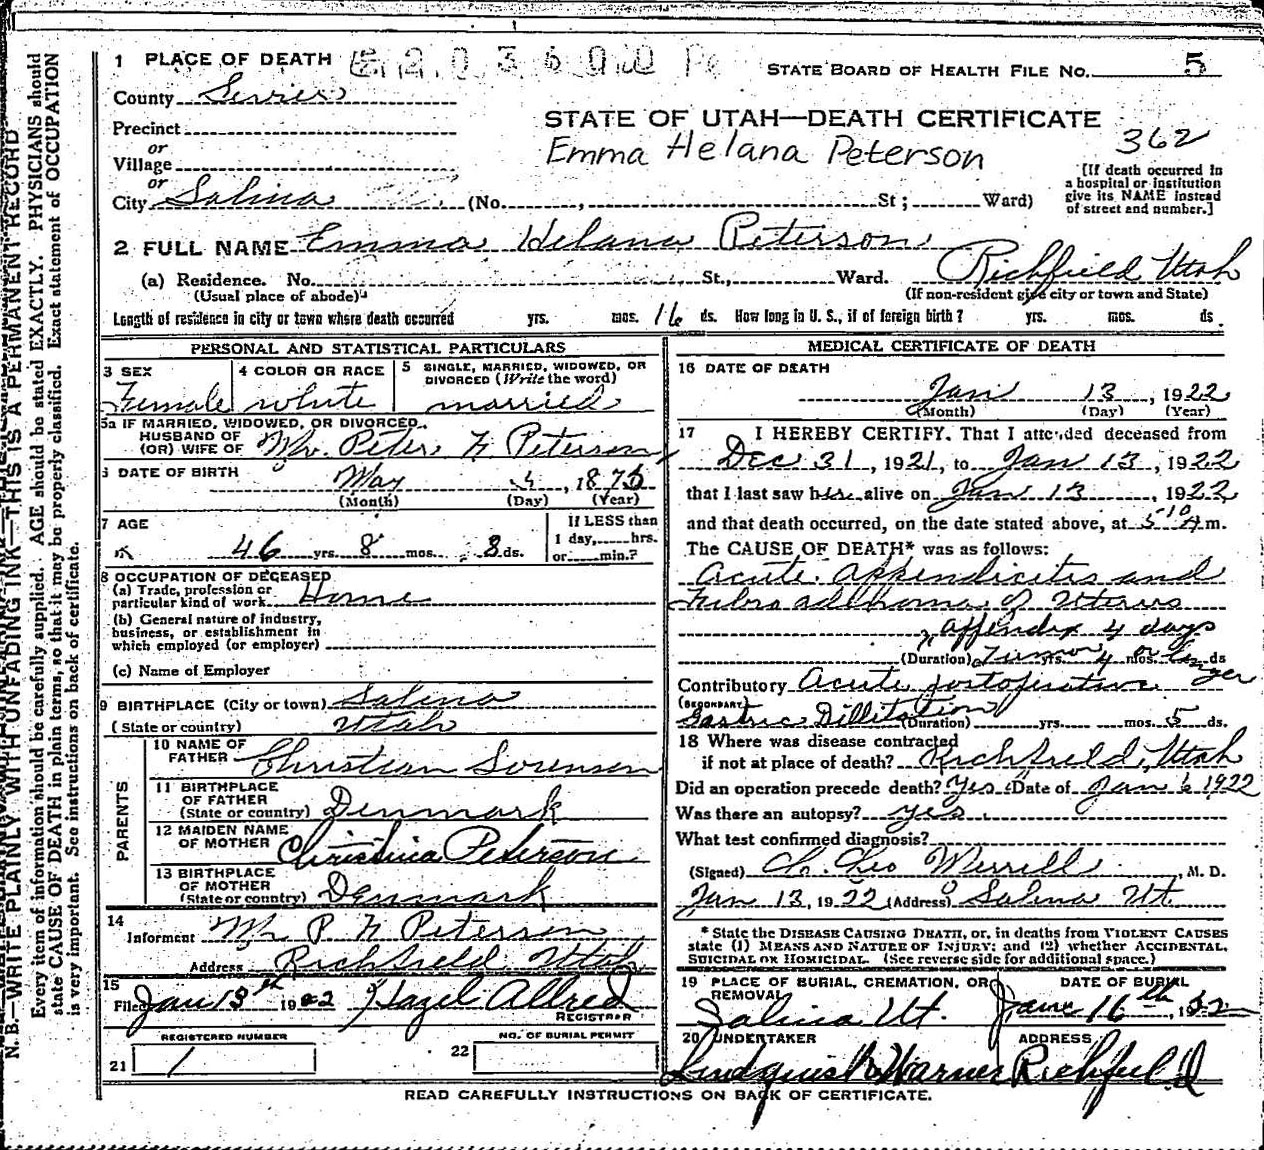 N.B.—WRITE PLAINLY WITH UNFADING INK—THIS IS A PERMANENT RECORD
Every item of information should be carefully supplied. AGE should be stated EXACTLY. PHYSICIANS should
state CAUSE OF DEATH in plain terms, so that it may be properly classified. Exact statement of OCCUPATION
is very important. See instructions on back of certificate.
1 PLACE OF DEATH
STATE BOARD OF HEALTH FILE NO. 5
County Sevier
STATE OF UTAH—DEATH CERTIFICATE
Precinct
Emma Helana Peterson
362
or
Village
or
City Salina (No. , St; Ward)
[If death occurred in
a hospital or institution
give its NAME instead
of street and number.]
2 FULL NAME Emma Helana Peterson
(a) Residence. No. St., Ward. Richfield Utah
(Usual place of abode) (If non-resident give city or town and State)
Length of residence in city or town where death occurred yrs. mos. 16 ds. How long in U. S., if of foreign birth? yrs. mos. ds.
PERSONAL AND STATISTICAL PARTICULARS
3 SEX 4 COLOR OR RACE 5 SINGLE, MARRIED, WIDOWED, OR
DIVORCED (Write the word)
Female white married
5a IF MARRIED, WIDOWED, OR DIVORCED
HUSBAND OF
(OR) WIFE OF Mr. Peter F Peterson
6 DATE OF BIRTH May 4, 1875
(Month) (Day) (Year)
7 AGE
46 yrs. 8 mos. 8 ds.
If LESS than
1 day, hrs.
or min.?
8 OCCUPATION OF DECEASED
(a) Trade, profession or
particular kind of work Home
(b) General nature of industry,
business, or establishment in
which employed (or employer)
(c) Name of Employer
9 BIRTHPLACE (City or town) Salina
(State or country) Utah
PARENTS
10 NAME OF
FATHER Christian Sorensen
11 BIRTHPLACE
OF FATHER
(State or country) Denmark
12 MAIDEN NAME
OF MOTHER Christina Peterson
13 BIRTHPLACE
OF MOTHER
(State or country) Denmark
14
Informent Mr P. F Peterson
Address Richfield Utah
15
Filed Jan 13th 1922 Hazel Allred
REGISTRAR
REGISTERED NUMBER
21 1
NO. OF BURIAL PERMIT
22
MEDICAL CERTIFICATE OF DEATH
16 DATE OF DEATH
Jan 13, 1922
(Month) (Day) (Year)
17 I HEREBY CERTIFY. That I attended deceased from
Dec 31, 1921, to Jan 13, 1922
that I last saw her alive on Jan 13, 1922
and that death occurred, on the date stated above, at 5 10 A m.
The CAUSE OF DEATH* was as follows:
Acute appendicites and
of Uterus
appendix 4 days
(Duration) Tumor yrs. 4 mos. or longer ds
Contributory Acute postoperative
(SECONDARY)
Gastric Dillitation (Duration) yrs. mos. 5 ds.
18 Where was disease contracted
if not at place of death? Richfield, Utah
Did an operation precede death? Yes Date of Jan 6 1922
Was there an autopsy? Yes
What test confirmed diagnosis?
(Signed) Geo Merrill, M. D.
Jan 13, 1922 (Address) Salina Ut.
* State the DISEASE CAUSING DEATH, or, in deaths from VIOLENT CAUSES
state (1) MEANS AND NATURE OF INJURY; and (2) whether ACCIDENTAL,
SUICIDAL OR HOMICIDAL. (See reverse side for additional space.)
19 PLACE OF BURIAL, CREMATION, OR
REMOVAL
Salina Ut.
DATE OF BURIAL
Jane 16th, 1922
20 UNDERTAKER ADDRESS
Lindquist & Warner Richfield
READ CAREFULLY INSTRUCTIONS ON BACK OF CERTIFICATE.